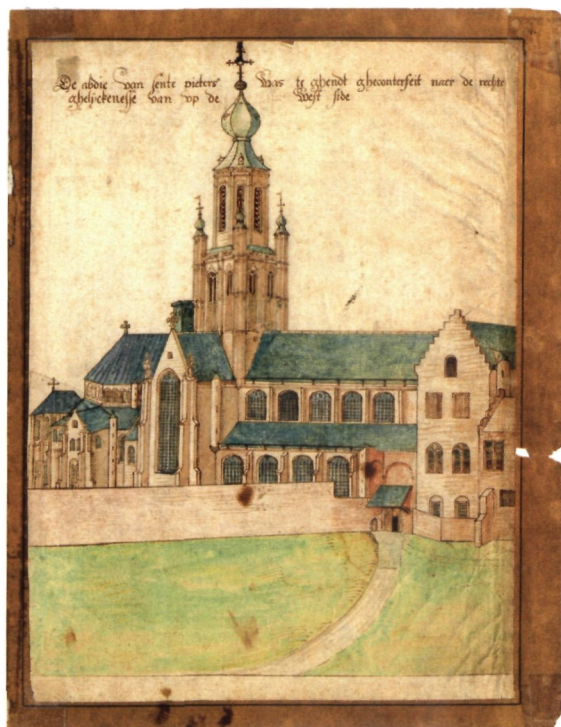 De abdie van sente pieters was te ghendt gheconterfeit naer de rechte
ghelyckenesse van op de west side